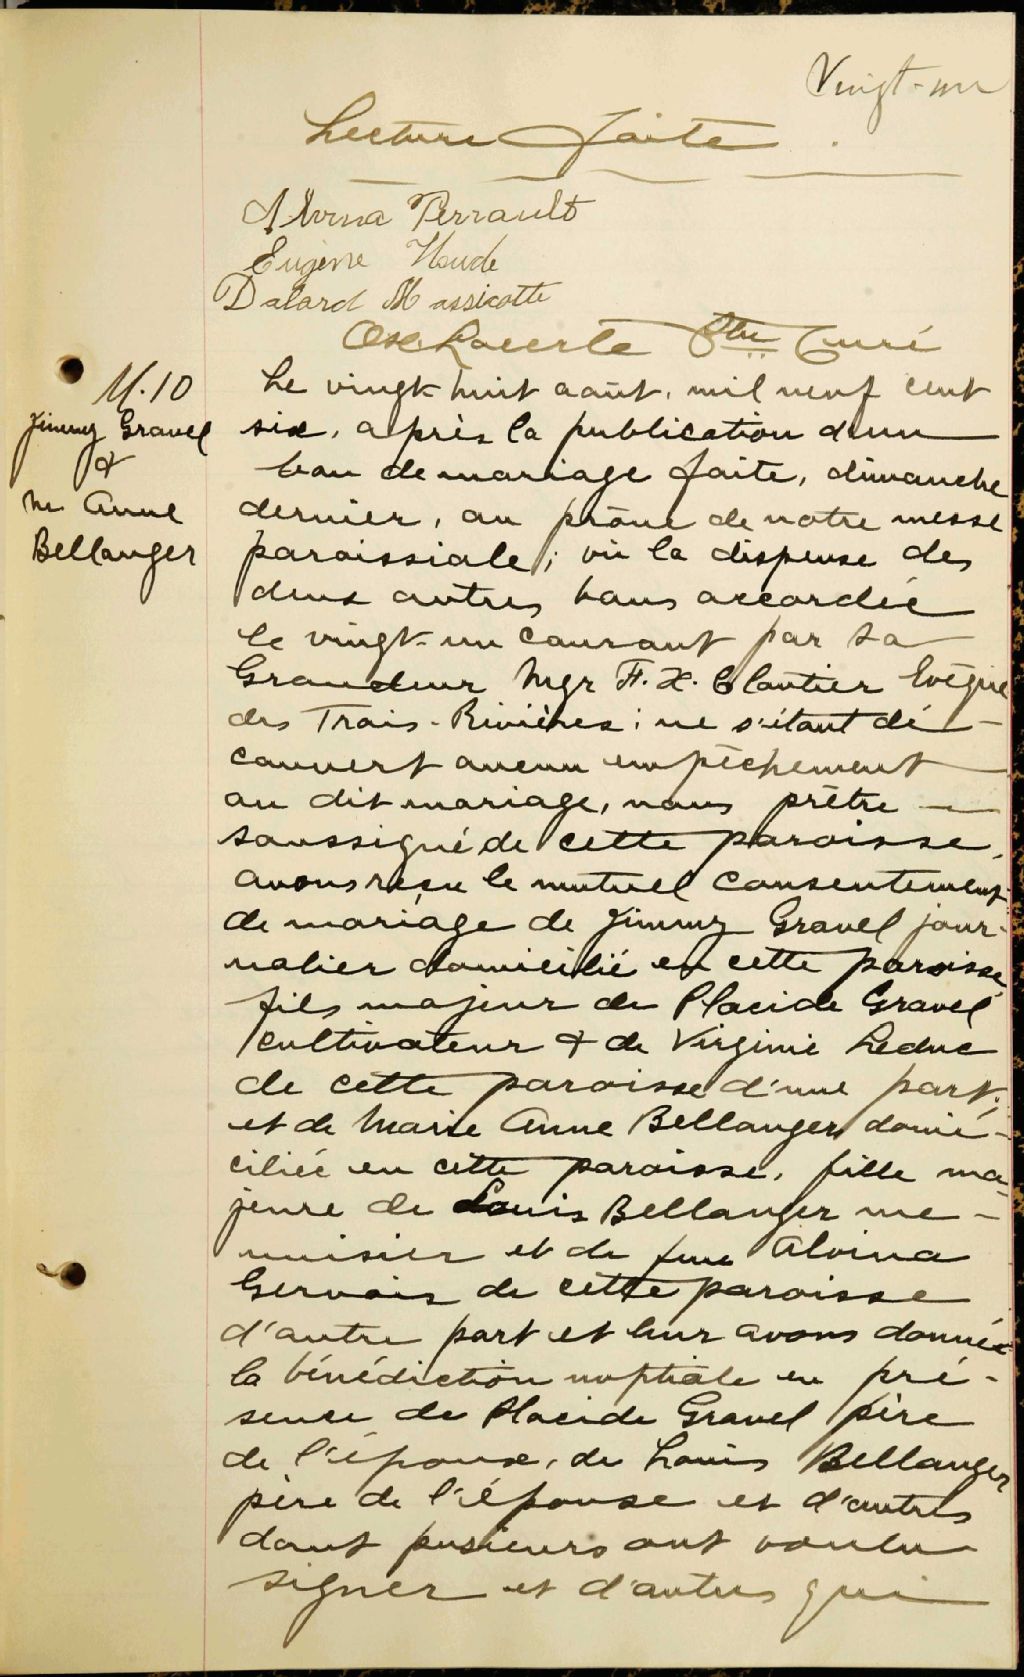 Vingt-un
Lecture faite.
Alvina Perrault
Eugène Houde
Dalard Massicotte
Ptre Curé
M. 10
Jimmy Gravel
&
M Anne
Bellanger
Le vingt huit août, mil neuf cent
six, après la publication d'un
ban de mariage faite, dimanche
dernier, au prône de notre messe
paroissiale; vu la dispense des
deux autres bans accordée
le vingt-un courant par Sa
Grandeur Mgr F. X. Cloutier Evêque
des Trois-Rivières; ne s'étant dé-
couvert aucun empêchement
au dit mariage, nous prêtre
soussigné de cette paroisse,
avons reçu le mutuel consentement
de mariage de Jimmy Gravel jour-
nalier domicilié en cette paroisse,
fils majeur de Placide Gravel
cultivateur & de Virginie Leduc
de cette paroisse d'une part;
et de Marie Anne Bellanger domi-
ciliée en cette paroisse, fille ma-
jeure de Louis Bellanger me-
nuisier et de feue Alvina
Gervais de cette paroisse
d'autre part et leur avons donnée
la bénédiction nuptiale en pré-
sence de Placide Gravel père
de l'époux, de Louis Bellanger
père de l'épouse et d'autres
dont pusieurs ont voulu
signer et d'autres qui